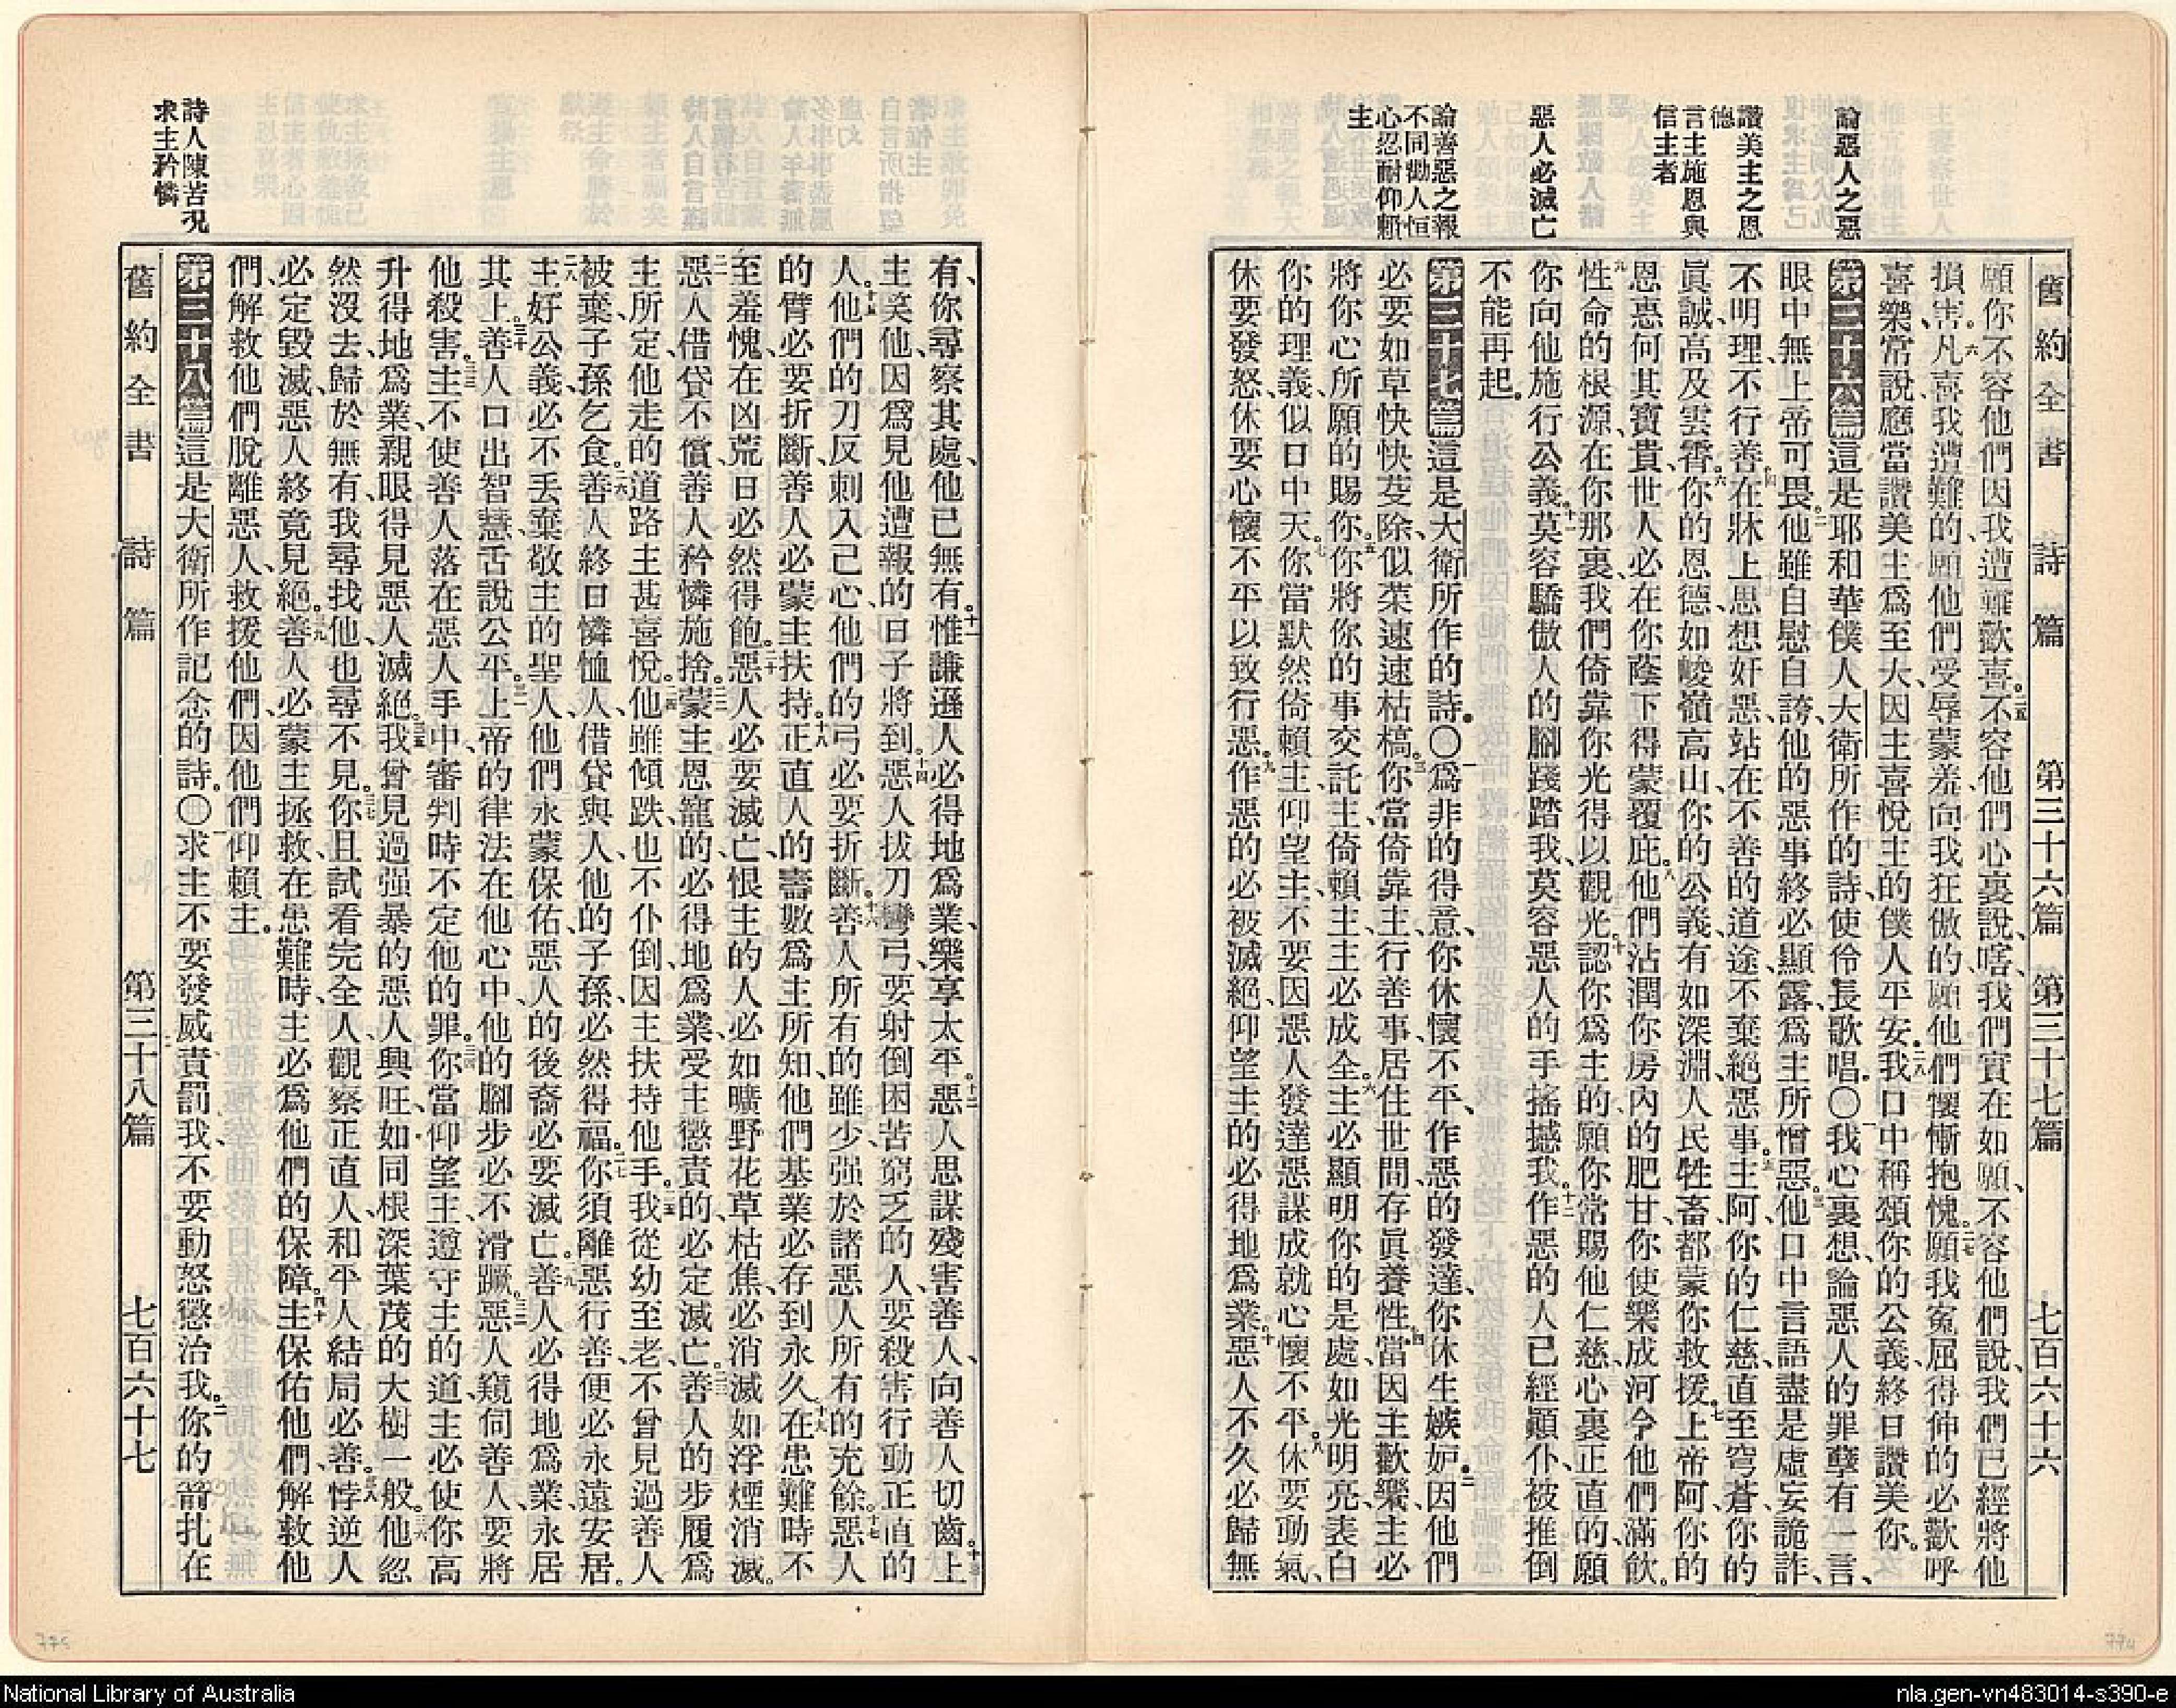 舊約全書　詩篇　第三十六篇　第三十七篇　七百六十六
論惡人之惡
讚美主之恩
德
言主施恩與
信主者
惡人必滅亡
論善惡之報
不同勸人恒
心忍耐仰賴
主
願你不容他們因我遭難歡喜。二五不容他們心裏說、嗐、我們實在如願、不容他們說、我們已經將他
損害。二六凡喜我遭難的、願他們受辱蒙羞、向我狂傲的、願他們懷慚抱愧。二七願我寃屈得伸的、必歡呼
喜樂、常說、應當讚美主爲至大、因主喜悅主的僕人平安。二八我口中稱頌你的公義、終日讚美你。
第三十六篇這是耶和華僕人大衛所作的詩、使伶長歌唱。〇一我心裏想、論惡人的罪孽有一言、
眼中無上帝可畏。二他雖自慰自誇、他的惡事終必顯露、爲主所憎惡。三他口中言語盡是虛妄詭詐、
不明理、不行善。四在牀上思想奸惡、站在不善的道途、不棄絕惡事。五主阿、你的仁慈、直至穹蒼、你的
眞誠、高及雲霄。六你的恩德、如峻嶺高山、你的公義、有如深淵、人民牲畜、都蒙你救援。七上帝阿、你的
恩惠何其寶貴、世人必在你蔭下得蒙覆庇。八他們沾潤你房內的肥甘、你使樂成河、令他們滿飲。
九性命的根源、在你那裏、我們倚靠你光得以觀光。十認你爲主的、願你常賜他仁慈、心裏正直的、願
你向他施行公義。十一莫容驕傲人的腳踐踏我、莫容惡人的手搖撼我。十二作惡的人已經顚仆、被推倒
不能再起。
第三十七篇這是大衛所作的詩。〇一爲非的得意、你休懷不平、作惡的發達、你休生嫉妒。二因他們
必要如草快快芟除、似菜速速枯槁。三你當倚靠主、行善事、居住世間、存眞養性。四當因主歡樂、主必
將你心所願的賜你。五你將你的事交託主、倚賴主、主必成全。六主必顯明你的是處、如光明亮、表白
你的理義、似日中天。七你當默然倚賴主、仰望主、不要因惡人發達惡謀成就、心懷不平。八休要動氣、
休要發怒、休要心懷不平、以致行惡。九作惡的必被滅絕、仰望主的必得地爲業。十惡人不久必歸無
有、你尋察其處、他已無有。十一惟謙遜人必得地爲業、樂享太平。十二惡人思謀殘害善人、向善人切齒。十三上
主笑他、因爲見他遭報的日子將到。十四惡人拔刀彎弓、要射倒困苦窮乏的人、要殺害行動正直的
人。十五他們的刀反刺入己心、他們的弓必要折斷。十六善人所有的雖少、强於諸惡人所有的充餘。十七惡人
的臂必要折斷、善人必蒙主扶持。十八正直人的壽數爲主所知、他們基業必存到永久。十九在患難時不
至羞愧、在凶荒日必然得飽。二十惡人必要滅亡、恨主的人必如曠野花草枯焦、必消滅如浮煙消滅。
二一惡人借貸不償、善人矜憐施捨。二二蒙主恩寵的必得地爲業、受主懲責的必定滅亡。二三善人的步履爲
主所定、他走的道路主甚喜悅。二四他雖傾跌、也不仆倒、因主扶持他手。二五我從幼至老、不曾見過善人
被棄、子孫乞食。二六善人終日憐恤人、借貸與人、他的子孫、必然得福。二七你須離惡行善、便必永遠安居。
二八主好公義、必不丟棄敬主的聖人、他們永蒙保佑、惡人的後裔必要滅亡。二九善人必得地爲業、永居
其上。三十善人口出智慧、舌說公平。三一上帝的律法在他心中、他的腳步必不滑蹶。三二惡人窺伺善人、要將
他殺害。三三主不使善人落在惡人手中、審判時不定他的罪。三四你當仰望主、遵守主的道、主必使你高
升得地爲業、親眼得見惡人滅絕。三五我曾見過强暴的惡人興旺、如同根深葉茂的大樹一般。三六他忽
然沒去、歸於無有、我尋找他、也尋不見。三七你且試看完全人、觀察正直人、和平人結局必善。三八悖逆人
必定毀滅、惡人終竟見絕。三九善人必蒙主拯救、在患難時、主必爲他們的保障。四十主保佑他們、解救他
們、解救他們脫離惡人、救援他們、因他們仰賴主。
第三十八篇這是大衛所作記念的詩。〇一求主不要發威責罰我、不要動怒懲治我。二你的箭扎在
詩人陳苦況
求主矜憐
舊約全書　詩篇　第三十八篇　七百六十七
775
774
National Library of Australia
nla.gen-vn483014-s390-e